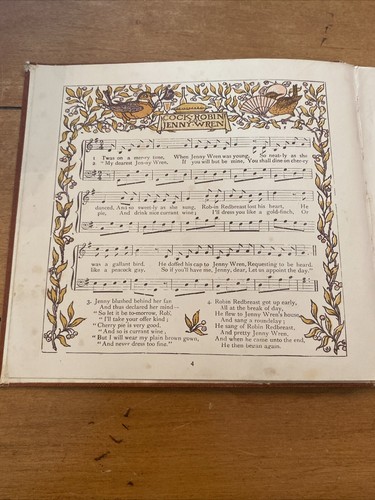 COCK-ROBIN
& JENNY-WREN
1 'Twas on a mer-ry time, When Jenny Wren was young, So neat-ly as she
2 "My dearest Jen-ny Wren, If you will but be mine, You shall dine on cher-ry
danced, And so sweet-ly as she sung, Rob-in Redbreast lost his heart, He
pie, And drink nice currant wine; I'll dress you like a gold-finch, Or
was a gallant bird, He doffed his cap to Jenny Wren, Requesting to be heard.
like a peacock gay, So if you'll have me, Jenny, dear, Let us appoint the day."
3. Jenny blushed behind her fan
And thus declared her mind:
"So let it be to-morrow, Rob,
"I'll take your offer kind;
"Cherry pie is very good,
"And so is currant wine;
"But I will wear my plain brown gown,
"And never dress too fine."
4. Robin Redbreast got up early,
All at the break of day,
He flew to Jenny Wren's house,
And sang a roundelay;
He sang of Robin Redbreast,
And pretty Jenny Wren,
And when he came unto the end,
He then began again.
4